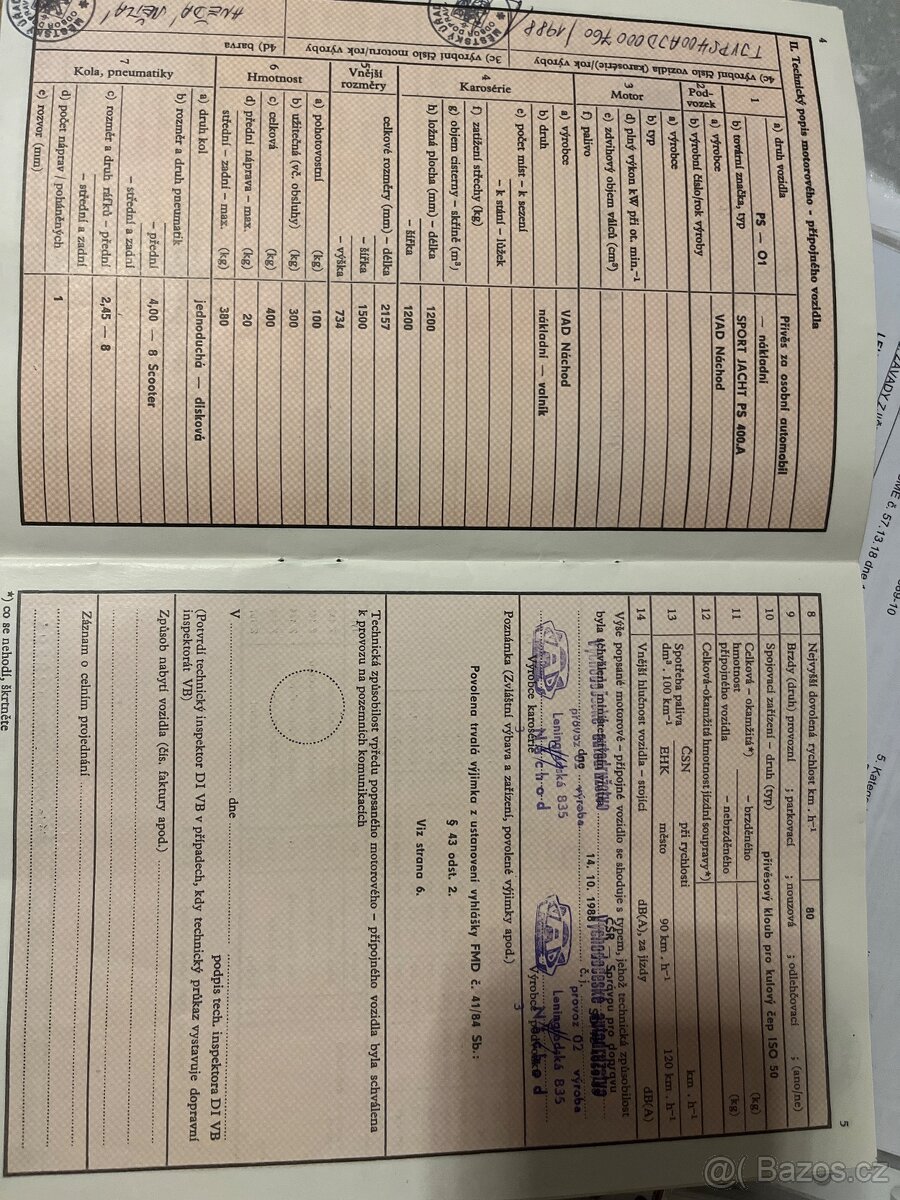 4
II. Technický popis motorového - přípojného vozidla
1
a) druh vozidla
Přívěs za osobní automobil
PS — 01
— nákladní
b) tovární značka, typ
SPORT JACHT PS 400.A
2
Podvozek
a) výrobce
VAD Náchod
b) výrobní číslo/rok výroby
3
Motor
a) výrobce
b) typ
d) plný výkon kW při ot. min.⁻¹
e) zdvihový objem válců (cm³)
f) palivo
4
Karosérie
a) výrobce
VAD Náchod
b) druh
nákladní — valník
e) počet míst – k sezení
– k stání – lůžek
f) zatížení střechy (kg)
g) objem cisterny – skříně (m³)
h) ložná plocha (mm) – délka
1200
– šířka
1200
5
Vnější rozměry
celkové rozměry (mm) – délka
2157
– šířka
1500
– výška
734
6
Hmotnost
a) pohotovostní (kg)
100
b) užitečná (vč. obsluhy) (kg)
300
c) celková (kg)
400
d) přední náprava – max. (kg)
20
střední – zadní – max. (kg)
380
7
Kola, pneumatiky
a) druh kol
jednoduchá — disková
b) rozměr a druh pneumatik
– přední
4,00 — 8 Scooter
– střední a zadní
c) rozměr a druh ráfků – přední
2,45 — 8
– střední a zadní
d) počet náprav / poháněných
1
e) rozvor (mm)
4c) výrobní číslo vozidla (karosérie)/rok výroby
TJVPS400AJD000760 / 1988
3c) výrobní číslo motoru/rok výroby
4d) barva
5
8 Nejvyšší dovolená rychlost km . h⁻¹
80
9 Brzdy (druh) provozní ; parkovací ; nouzová ; odlehčovací ; (ano/ne)
10 Spojovací zařízení – druh (typ) přívěsový kloub pro kulový čep ISO 50
11 Celková – okamžitá*) hmotnost přípojného vozidla
– brzděného (kg)
– nebrzděného (kg)
12 Celková-okamžitá hmotnost jízdní soupravy*)
13 Spotřeba paliva dm³ . 100 km⁻¹
ČSN při rychlosti km . h⁻¹
EHK město 90 km . h⁻¹ 120 km . h⁻¹
14 Vnější hlučnost vozidla – stojící dB(A), za jízdy dB(A)
Výše popsané motorové – přípojné vozidlo se shoduje s typem, jehož technická způsobilost
byla schválena
ČSR — Správou pro dopravu
dne 14. 10. 1988 č. j.
provoz 02 výroba
Leningradská 835
Náchod
Výrobce karosérie
provoz 02 výroba
Leningradská 835
Výrobce podvozku
Poznámka (Zvláštní výbava a zařízení, povolené výjimky apod.)
Povolena trvalá výjimka z ustanovení vyhlášky FMD č. 41/84 Sb.:
§ 43 odst. 2.
Viz strana 6.
Technická způsobilost vpředu popsaného motorového – přípojného vozidla byla schválena
k provozu na pozemních komunikacích
V dne
podpis tech. inspektora DI VB
(Potvrdí technický inspektor DI VB v případech, kdy technický průkaz vystavuje dopravní
inspektorát VB)
Způsob nabytí vozidla (čís. faktury apod.)
Záznam o celním projednání
*) co se nehodí, škrtněte
@( Bazos.cz